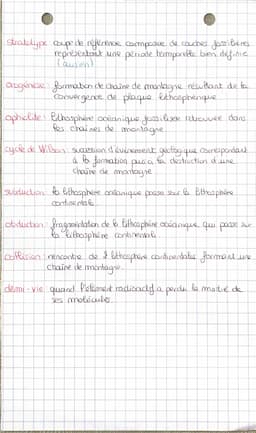 stratotype coupe de référence composée de couches fossilifères
représentant une période temporelle bien définie
orogénèse: formation de chaîne de montagne résultant de la
convergence de plaque lithosphérique
ophiolite: lithosphère océanique fossilisée retrouvée dans
les chaînes de montagne
cycle de Wilson: succession d'évènement géologique correspondant
à la formation puis à la destruction d'une
chaîne de montagne
subduction: la lithosphère océanique passe sous la lithosphère
continentale
obduction: fragmentation de la lithosphère océanique qui passe sur
la lithosphère continentale
collision: rencontre de 2 lithosphère continentales formant une
chaîne de montagne.
demi-vie: quand l'élément radioactif a perdu la moitié de
ses molécules